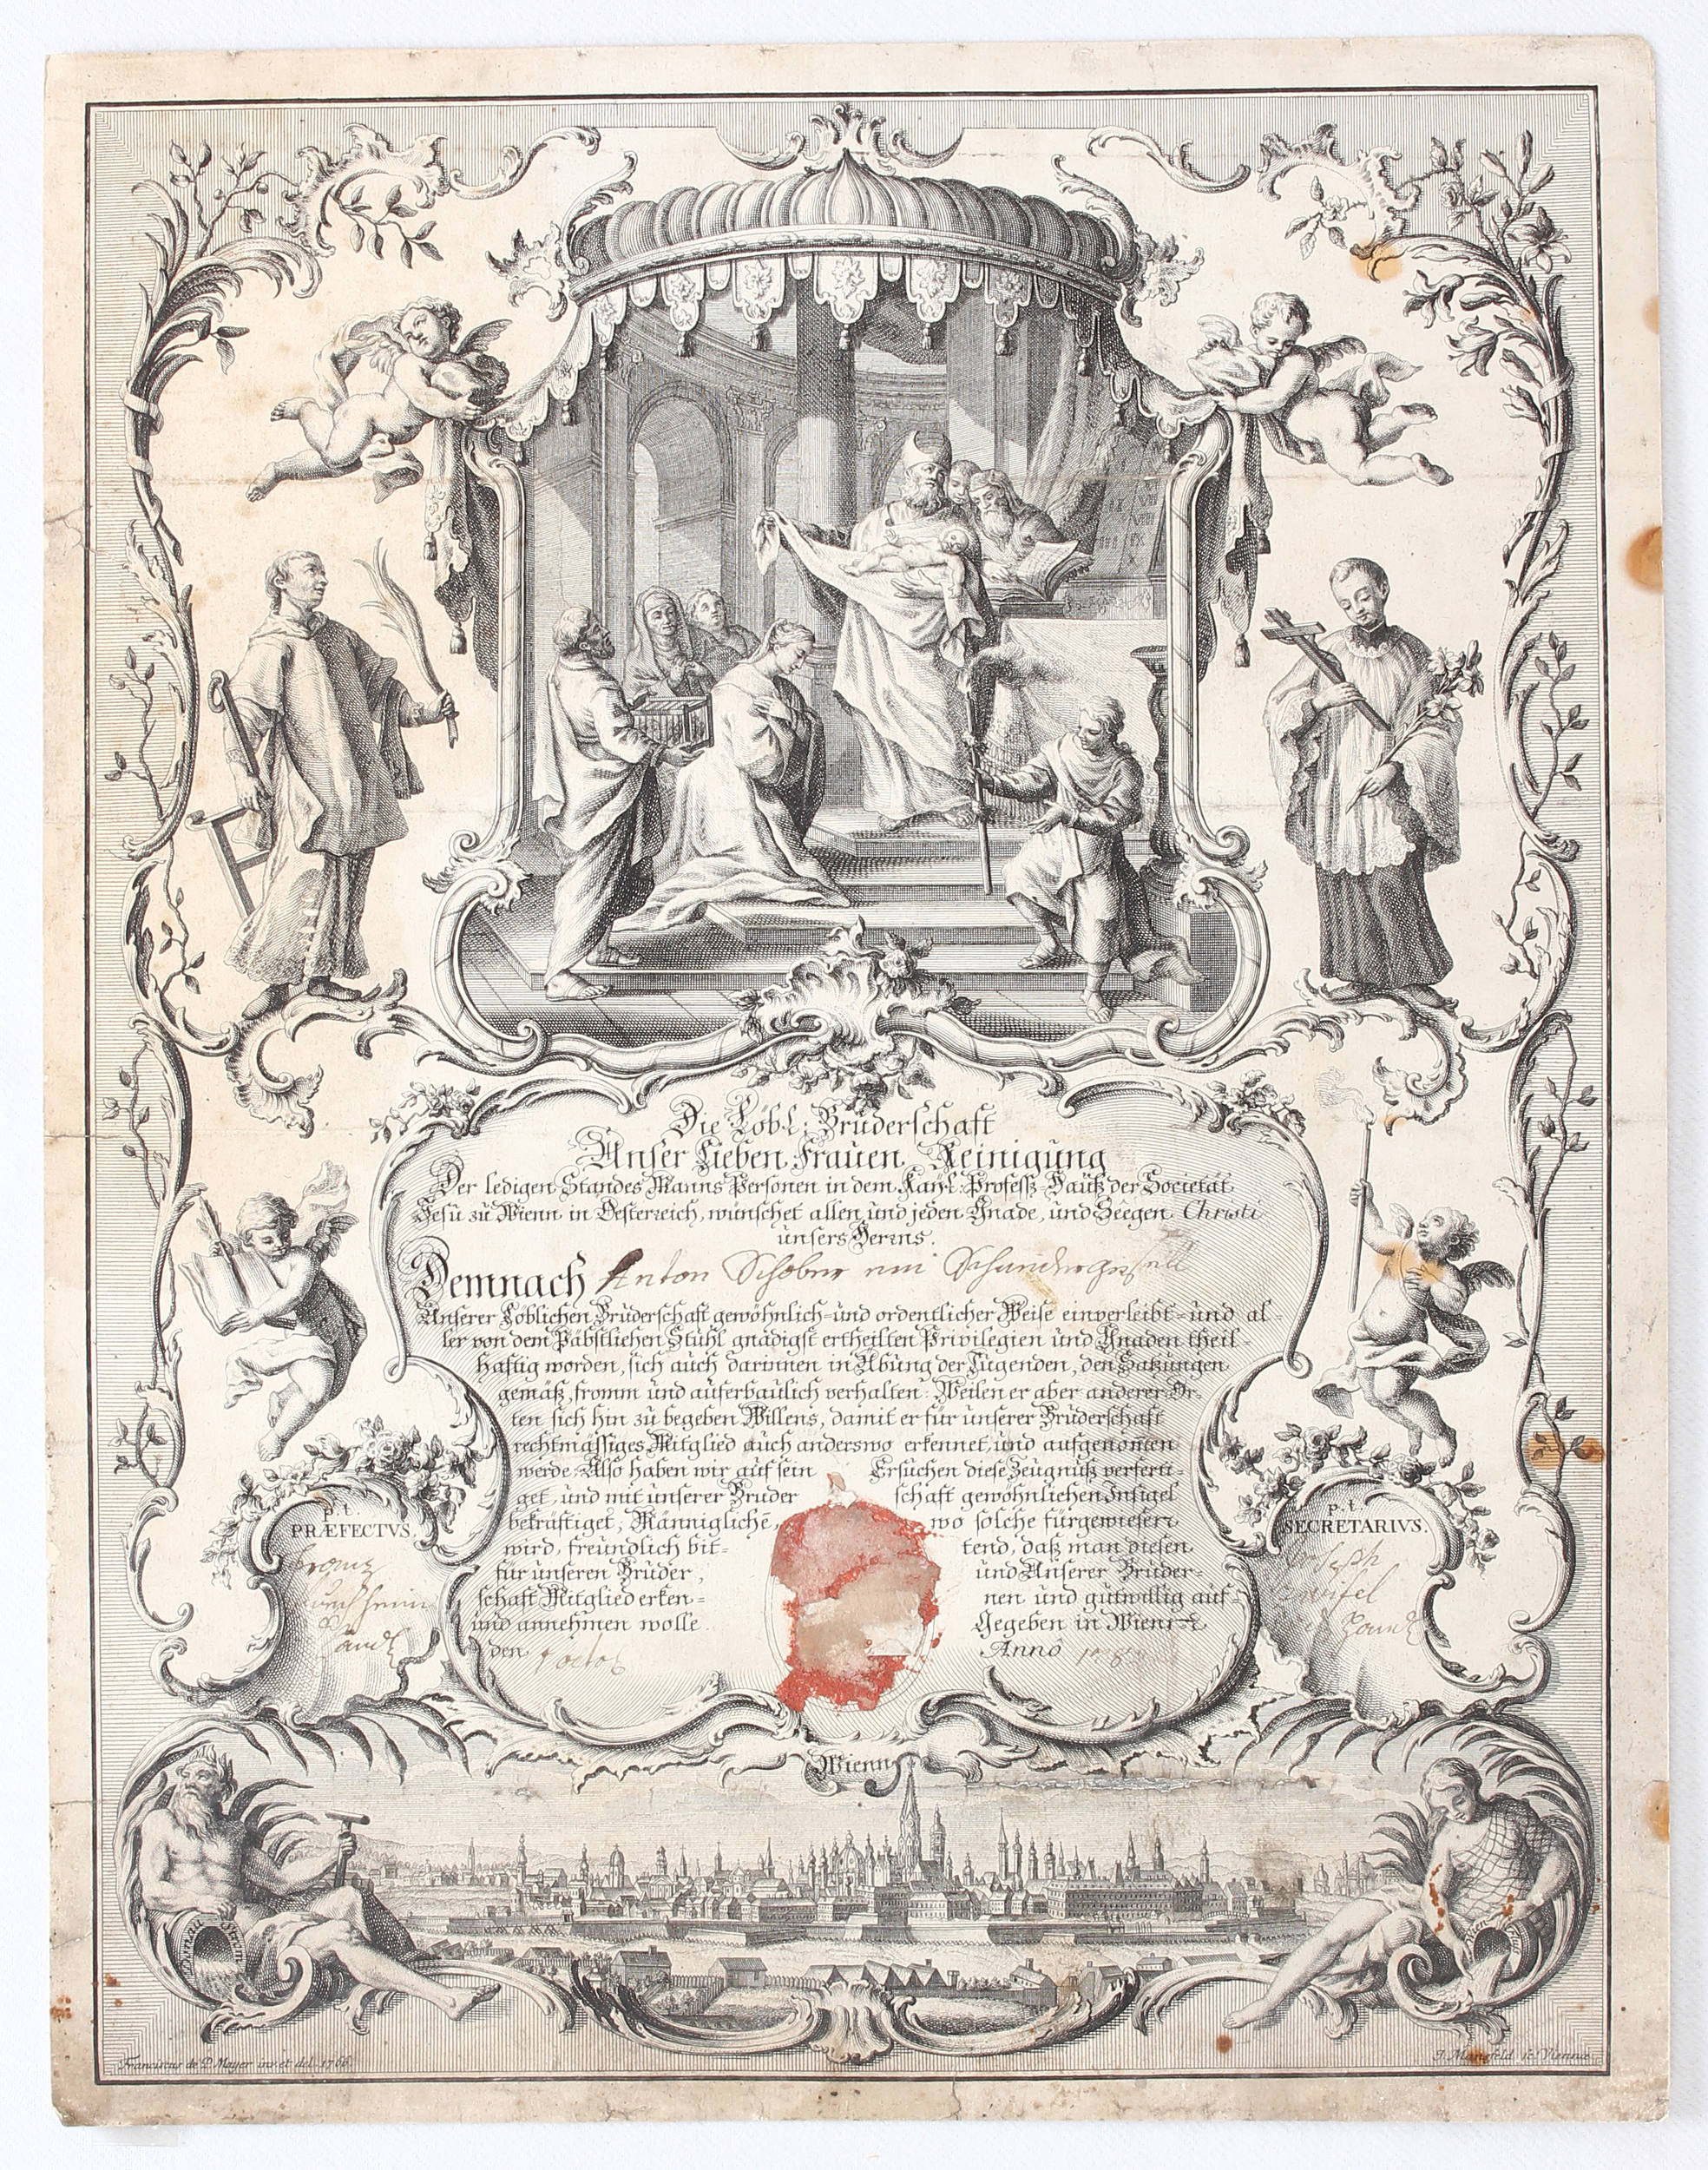 Die Löbl: Bruderschaft
Unser Lieben Frauen Reinigung
Der ledigen Standes Manns Persönen in dem Profess-Hauß der Societät
Jesu zu Wienn in Oesterreich, wünschet allen und jeden Gnade, und Seegen Christi
unsers Herrns.
Demnach Anton Schober ein
Unserer Löblichen Bruderschaft gewöhnlich- und ordentlicher Weise einverleibt- und al-
ler von dem Päbstlichen Stuhl gnädigst ertheilten Privilegien und Gnaden theil-
haftig worden, sich auch darinnen in Übung der Tugenden, den Satzungen
gemäß, fromm und auferbaulich verhalten: Weilen er aber anderer Or-
ten sich hin zu begeben Willens, damit er für unserer Bruderschaft
rechtmässiges Mitglied auch anderswo erkennet, und aufgenom̄en
werde: Also haben wir auf sein Ersuchen diese Zeugnuß verferti-
get, und mit unserer Bruder schaft gewöhnlichen Insigel
bekräftiget, Männigliche, wo solche fürgewiesen
wird, freundlich bit- tend, daß man diesen
für unseren Bruder, und Unserer Bruder-
schaft Mitglied erken- nen und gutwillig auf-
und annehmen wolle. Gegeben in Wienn
den Anno
p. t.
PRÆFECTVS.
Franz
p. t.
SECRETARIVS.
Joseph
Wienn
Donau Strom
Wien
Franciscus de P. Mayer inv. et del. 1766.
J. Mansfeld sc. Viennæ